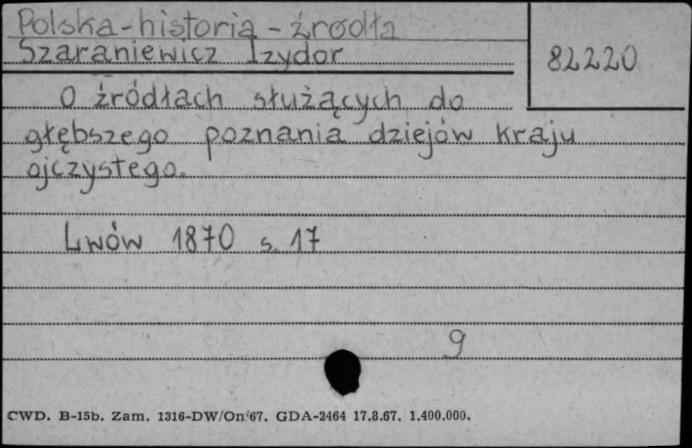 Polska-historia-źródła
Szaraniewicz Izydor
82220
O źródłach służących do
głębszego poznania dziejów kraju
ojczystego.
Lwów 1870 s. 17
9
CWD. B-15b. Zam. 1316-DW/On/67. GDA-2464 17.8.67. 1.400.000.